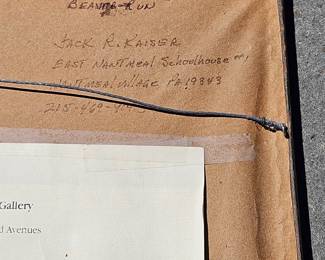 BEAVER-RUN
JACK R. KAISER
EAST NANTMEAL Schoolhouse #1
NANTMEAL Village PA 19343
215-469-
Gallery
d Avenues